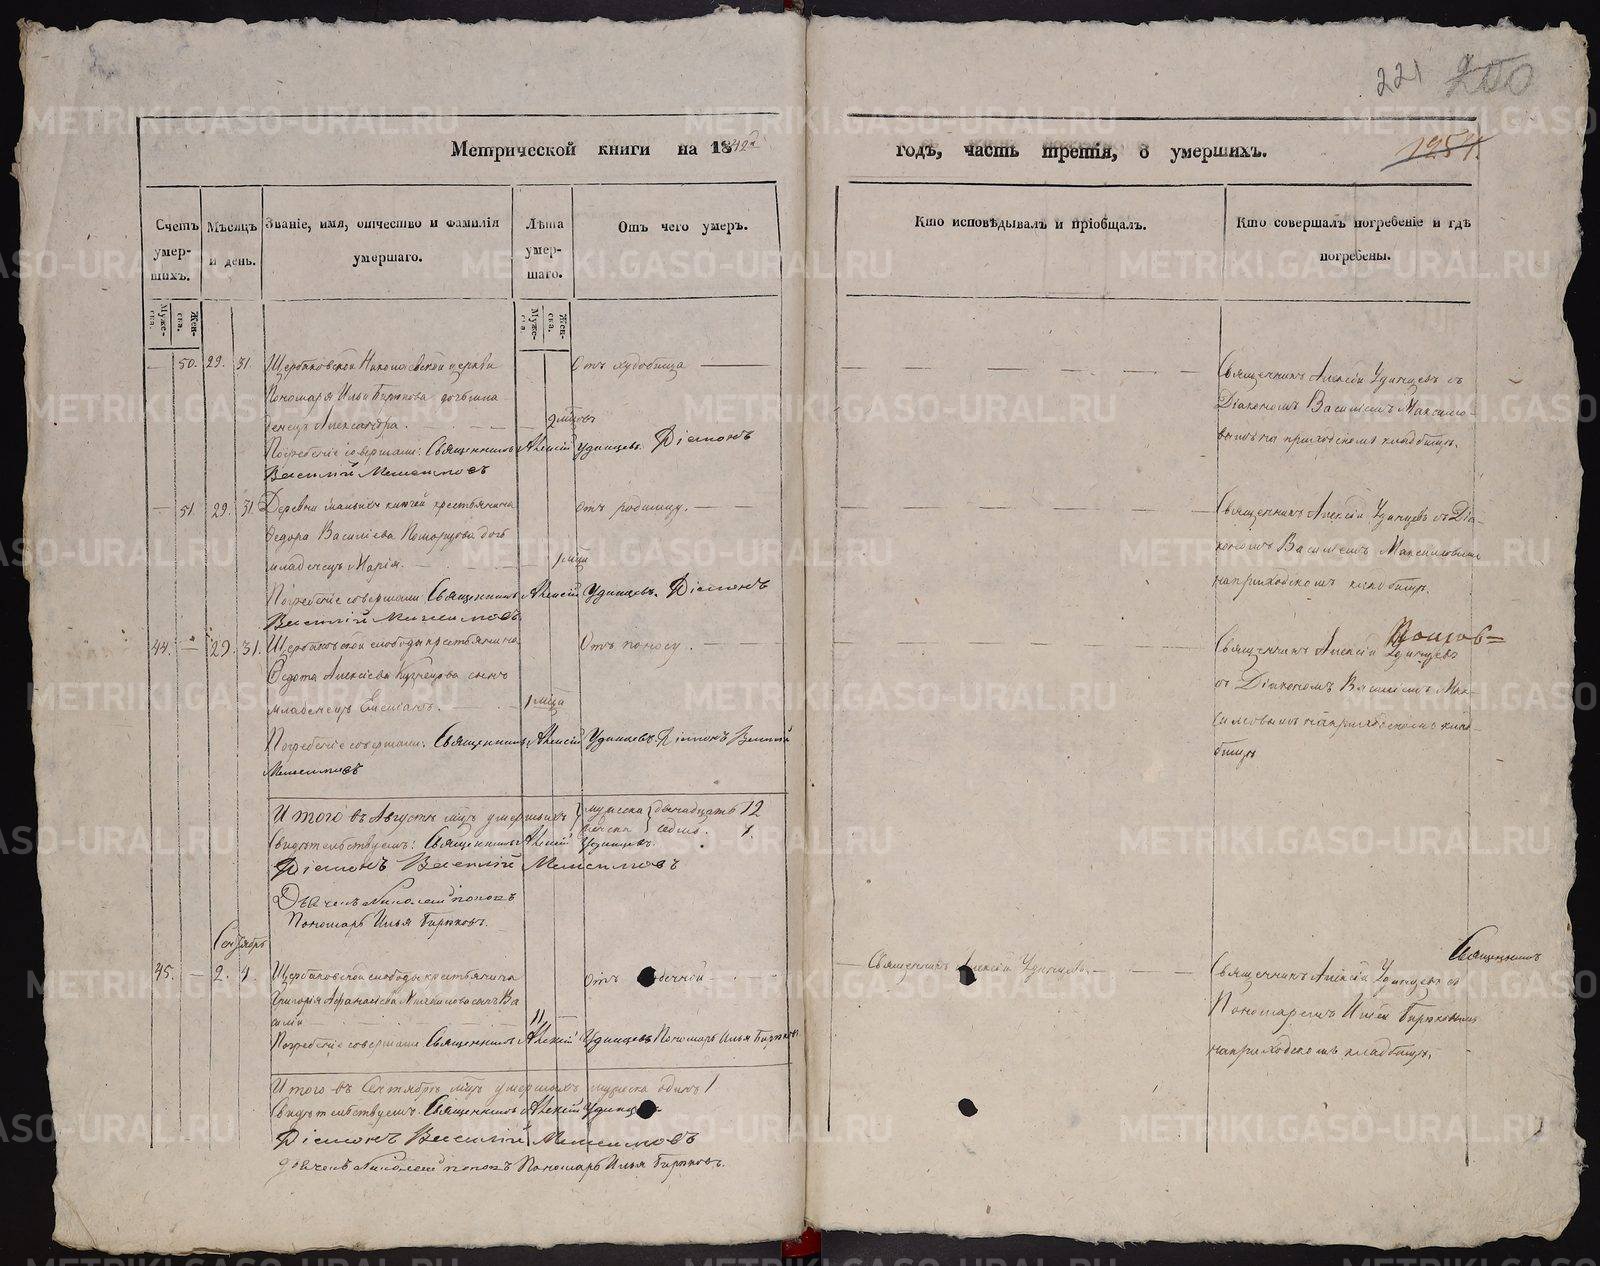 221 200
Метрической книги на 1842й годъ, часть третія, о умершихъ.
1254.
Счетъ умерших.
Мѣсяцъ и день.
Званіе, имя, отчество и фамилія умершаго.
Лѣта умершаго.
Отъ чего умеръ.
Кто исповѣдывалъ и пріобщалъ.
Кто совершалъ погребеніе и гдѣ погребены.
Мужеска. Женска.
Мужеска. Женска.
— 50. 29. 31. Щербаковской Николаевской церкви
Пономаря Ильи Бирюкова дочь мла-
денецъ Александра.
Погребеніе совершали: Священникъ Алексій Удинцевъ. Діаконъ
Василій Максимовъ
Священникъ Алексій Удинцевъ съ
Діакономъ Василіемъ Максимо-
вымъ на приходскомъ кладбищѣ.
— 51. 29. 31. Деревни крестьянина
Ѳедора Василіева дочь
младенецъ Марія.
Отъ родимцу.
Погребеніе совершали Священникъ Алексій Удинцевъ. Діаконъ
Василій Максимовъ.
Священникъ Алексій Удинцевъ съ Діа-
кономъ Василіемъ Максимовымъ
на приходскомъ кладбищѣ.
44. — 29. 31. Щербаковской слободы крестьянина
Ѳедота Алексіева Кузнецова сынъ
младенецъ
Отъ поносу.
Погребеніе совершали: Священникъ Алексій Удинцевъ. Діаконъ Василій
Максимовъ
Священникъ Алексій Удинцевъ
съ Діакономъ Василіемъ Мак-
симовымъ на приходскомъ клад-
бищѣ
Итого въ Августѣ мцѣ умершихъ мужеска двенадцать 12
женска седмь. 7.
Свидѣтельствуемъ: Священникъ Алексій Удинцевъ.
Діаконъ Василій Максимовъ
Дьячекъ Николай Поповъ
Пономарь Илья Бирюковъ.
Сентябрь
45. — 2. 4. Щербаковской слободы крестьянина
Григорія Афанасіева сынъ Ва-
силій
11
Отъ
Погребеніе совершали Священникъ Алексій Удинцевъ Пономарь Илья Бирюковъ
Священникъ Алексій Удинцевъ
Священникъ
Священникъ Алексій Удинцевъ съ
Пономаремъ Ильей Бирюковымъ
на приходскомъ кладбищѣ.
Итого въ Сентябрѣ мцѣ умершихъ мужеска одинъ 1
Свидѣтельствуемъ Священникъ Алексій Удинцевъ
Діаконъ Василій Максимовъ
Дьячекъ Николай Поповъ Пономарь Илья Бирюковъ.
METRIKI.GASO-URAL.RU